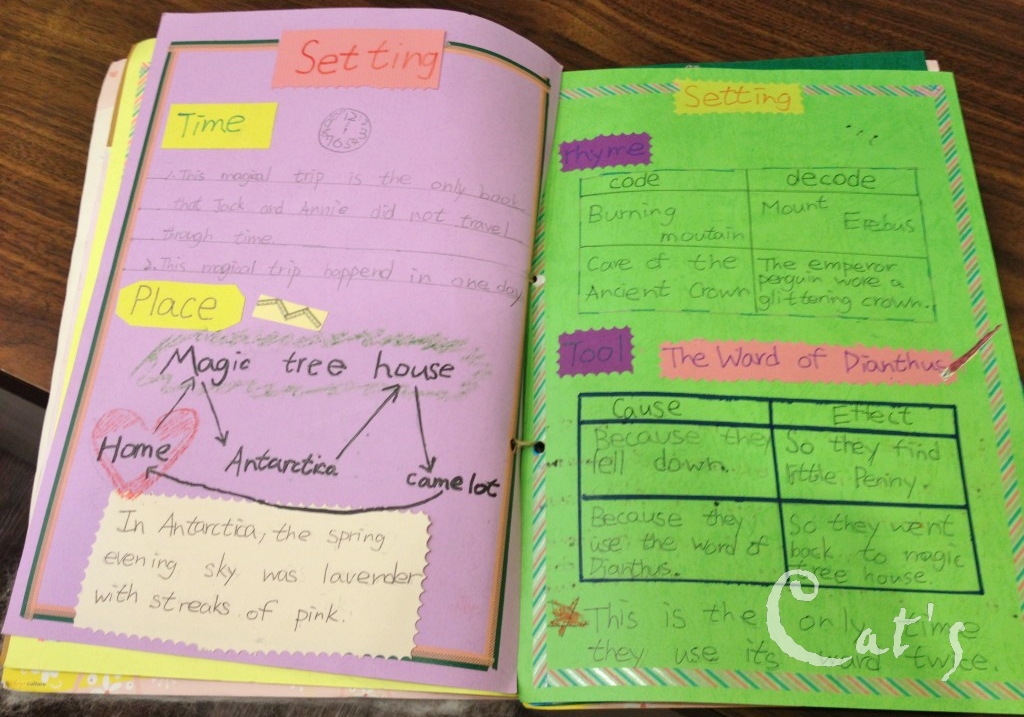 Setting
Time
1. This magical trip is the only book
that Jack and Annie did not travel
through time.
2. This magical trip happend in one day
Place
Magic tree house
Home
Antarctica
camelot
In Antarctica, the spring
evening sky was lavender
with streaks of pink.
Setting
rhyme
code decode
Burning
moutain
Mount
Erebus
Cave of the
Ancient Crown
The emperor
penguin wore a
glittering crown.
Tool
The Ward of Dianthus
Cause Effect
Because they
fell down.
So they find
little Penny.
Because they
use the word of
Dianthus.
So they went
back to magic
tree house.
This is the only time
they use its ward twice.
Cat's